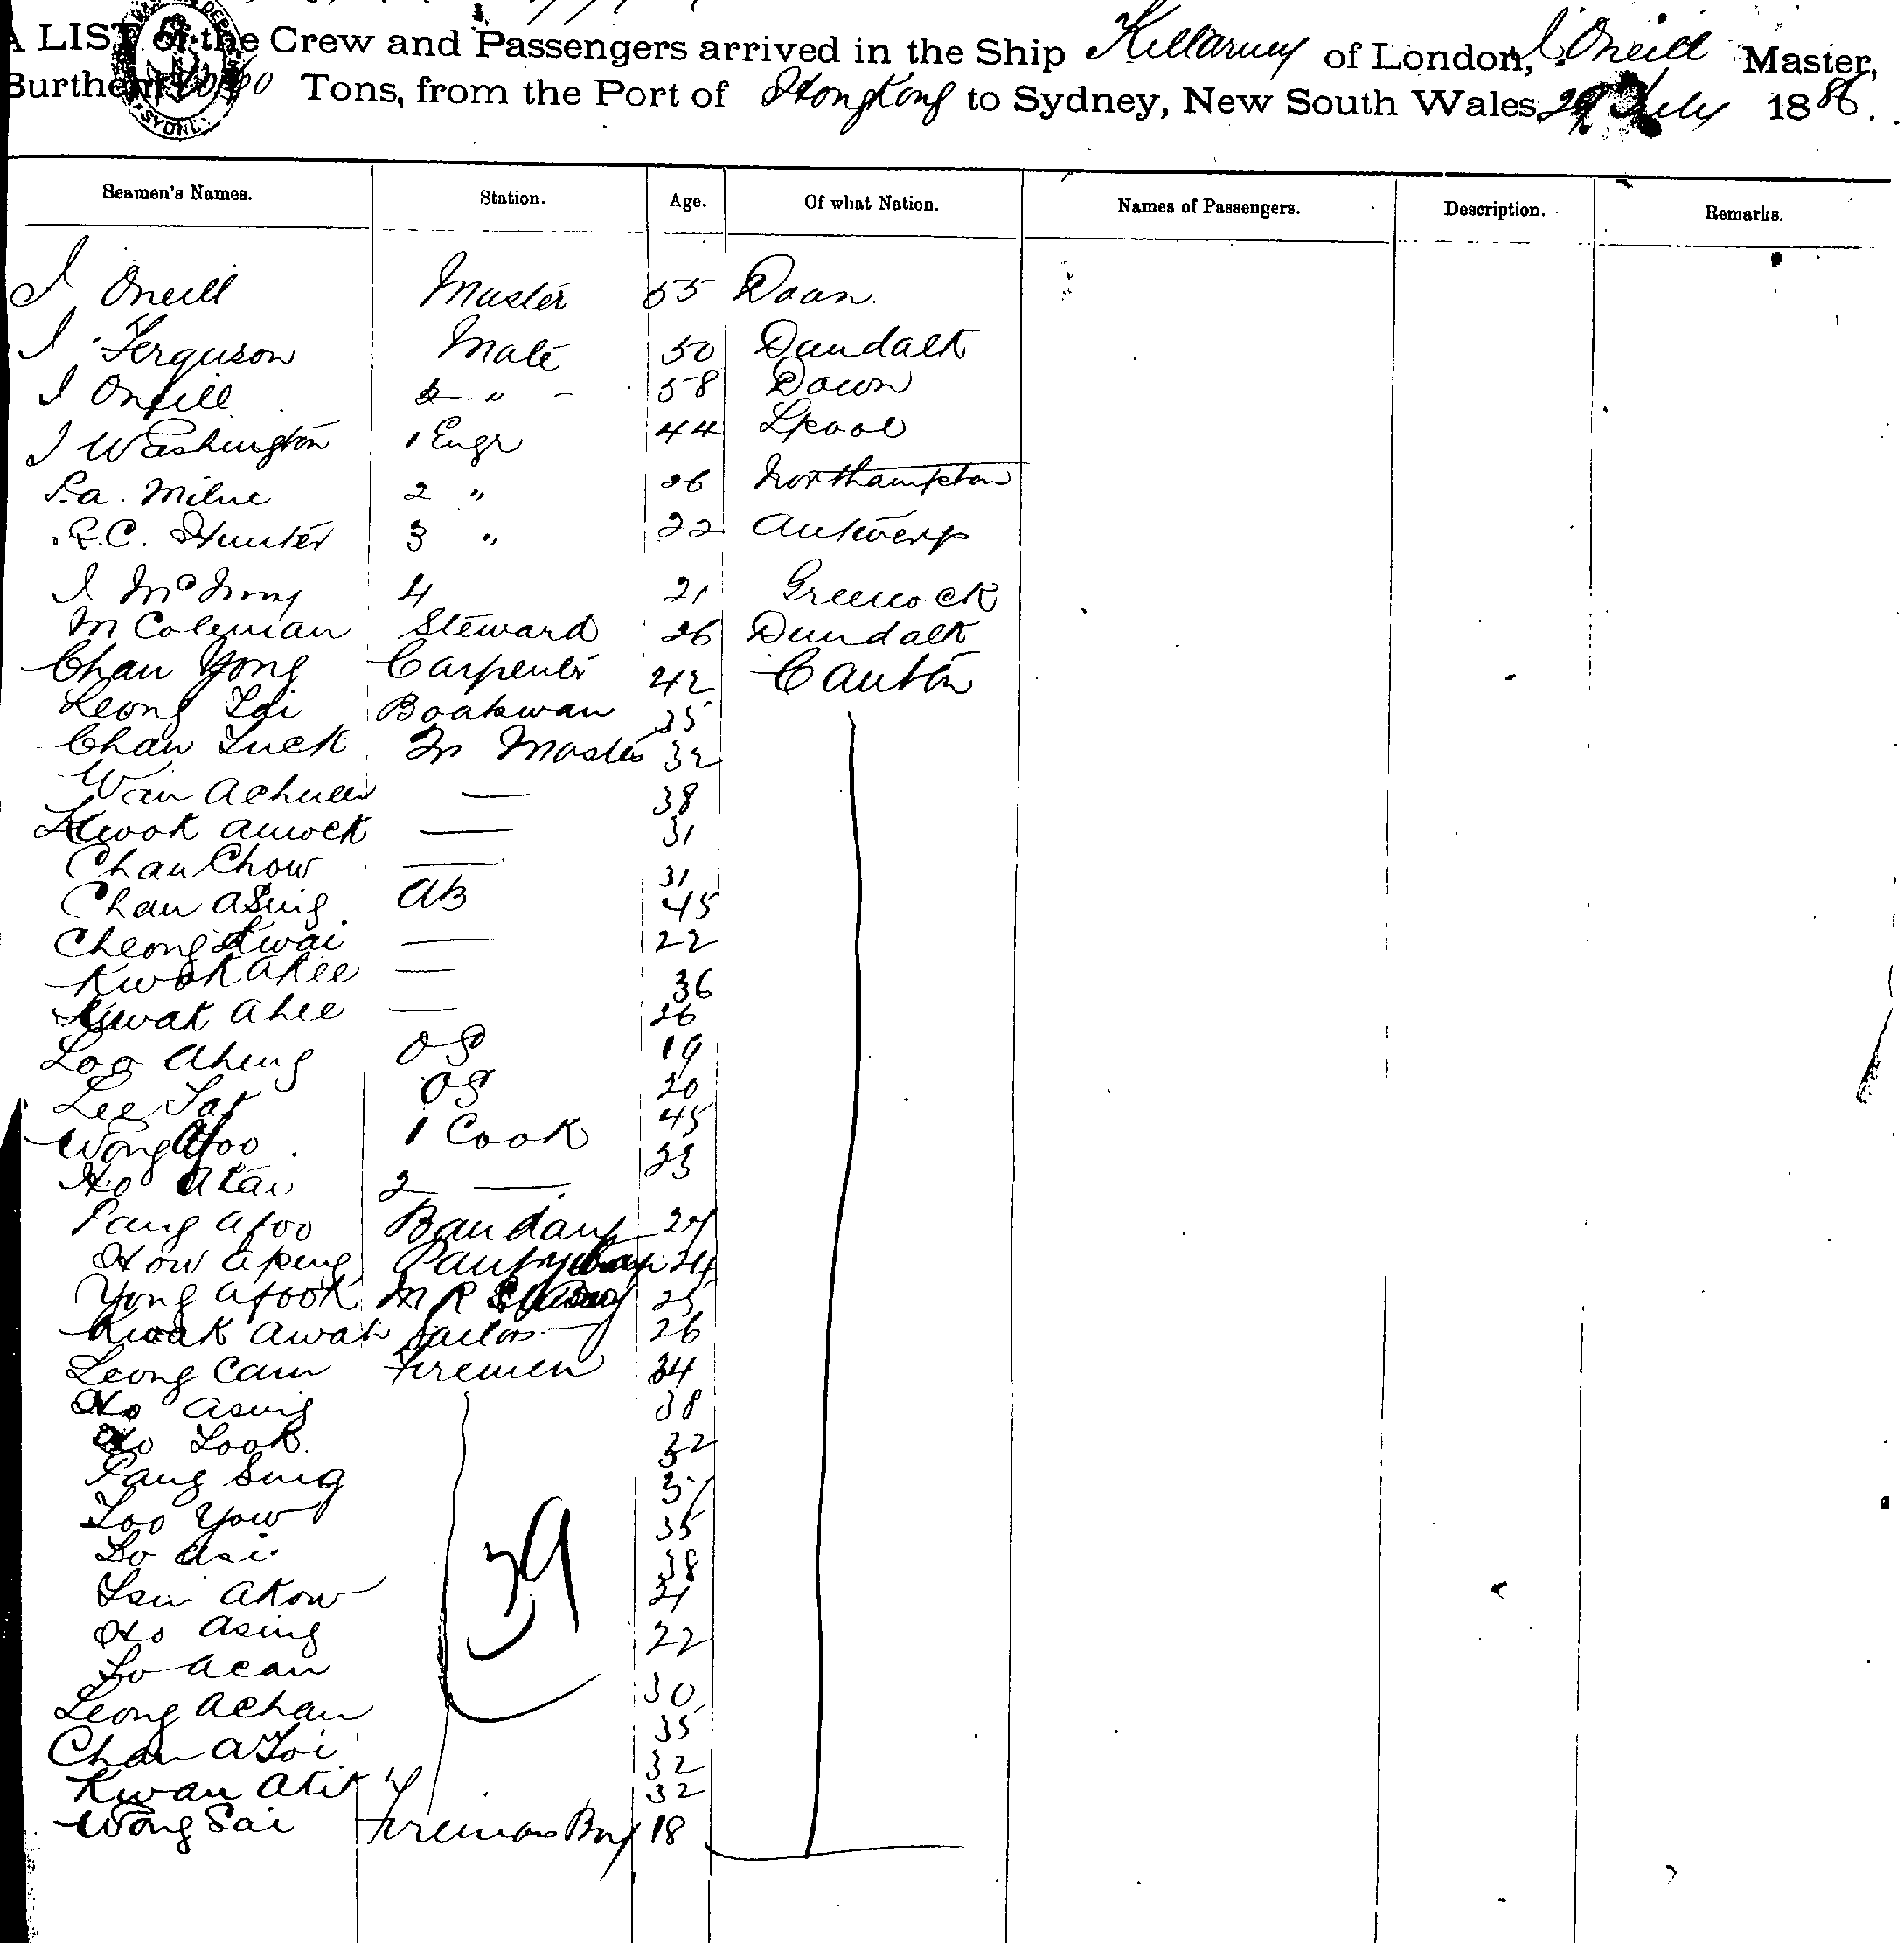 A LIST of the Crew and Passengers arrived in the Ship Killarney of London, J. Oneill Master,
Burthen Tons, from the Port of HongKong to Sydney, New South Wales, 29 July 1886.
Seamen's Names. Station. Age. Of what Nation. Names of Passengers. Description. Remarks.
J Oneill Master 55 Doan
J Ferguson Mate 50 Dundalk
J Oneill 2 " 58 Down
J Washington 1 Engr 44 Lpool
P.a. Milne 2 " 26 Northampton
R.C. Hunter 3 " 22 Antwerp
J 4 21 Greenock
M Coleman Steward 26 Dundalk
Chan Yong Carpenter 42 Canton
Leong Loi Boatswan 35
Chan Luck Qr Master 32
Wan Achuen — 38
Kwok — 31
Chan Chow — 31
Chan aSing AB 45
Cheong Kwai — 22
Kwok AKee — 36
Kwak ahee — 26
Loo aheng OS 19
Lee Sat OS 20
Wong Afoo 1 Cook 45
Ho Atai 2 — 23
Pang afoo 27
How apeng 24
Yong afook 25
Kwok Awah Sailors 26
Leong Cam Firemen 34
Ho asing 38
Ho Look 32
Pang Sing 37
Loo Yow 35
Lo Asi 38
39
akow 21
Ho asing 22
Lo acan 30
Leong achan 35
Chan aLoi 32
Kwan Atit 32
Wong Sai Firemans Boy 18